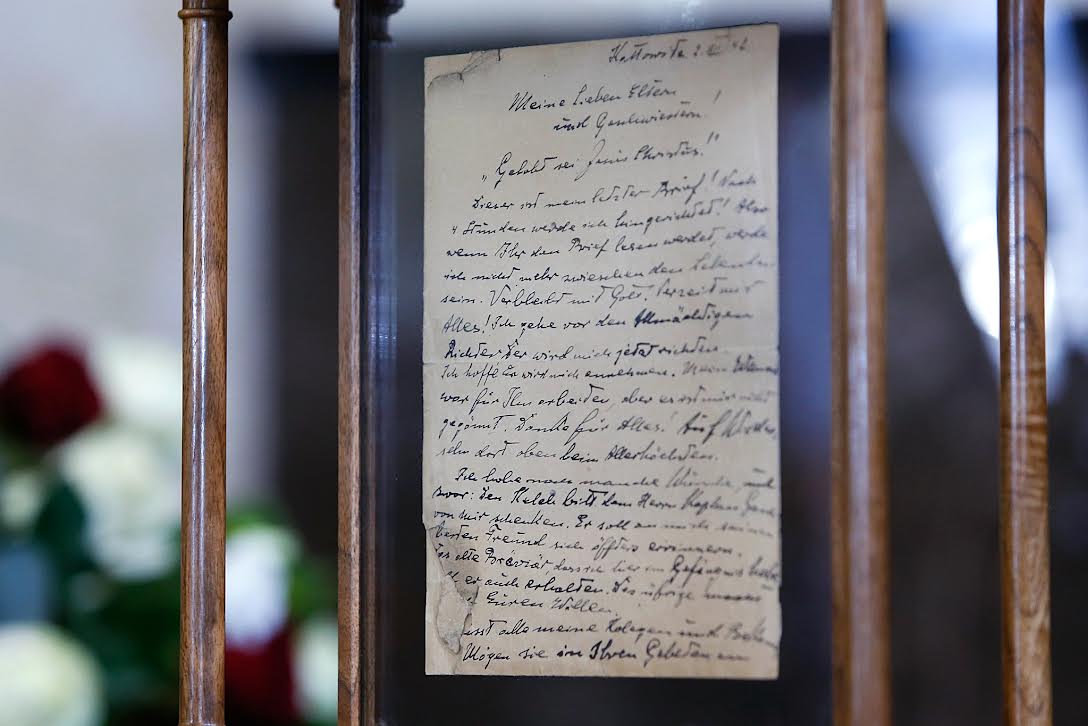 Kattowitz 2.XII 42
Meine Lieben Eltern
und Geschwistern!
„Gelobt sei Jesus Christus!"
Dieser ist mein letzter Brief! Nach
4 Stunden werde ich hingerichtet! Also
wenn Ihr den Brief lesen werdet, werde
ich nicht mehr zwieschen den Lebenden
sein. Verbleibt mit Gott! Verzeiht mir
Alles! Ich gehe vor den Allmächtigen
Richter Der wird mich jetzt richten.
Ich hoffe Er wird mich annehmen. Mein
war für Ihn arbeiten, aber es ist mir nicht
gegönnt. Danke für Alles! Auf Wieder,
sehn dort oben beim Allerhöchsten.
Ich habe noch manche Wünsche, und
zwar: Den Kelch bitt dem Herrn Kaplan
von mir schenken. Er soll an mich seinen
besten Freund sich öffters errinnern.
das alte Breviär, das ich hier im Gefängnis
er auch erhalten. Das übrige
Euren Willen.
alle meine Kolegen und
Mögen sie in Ihren Gebeten an